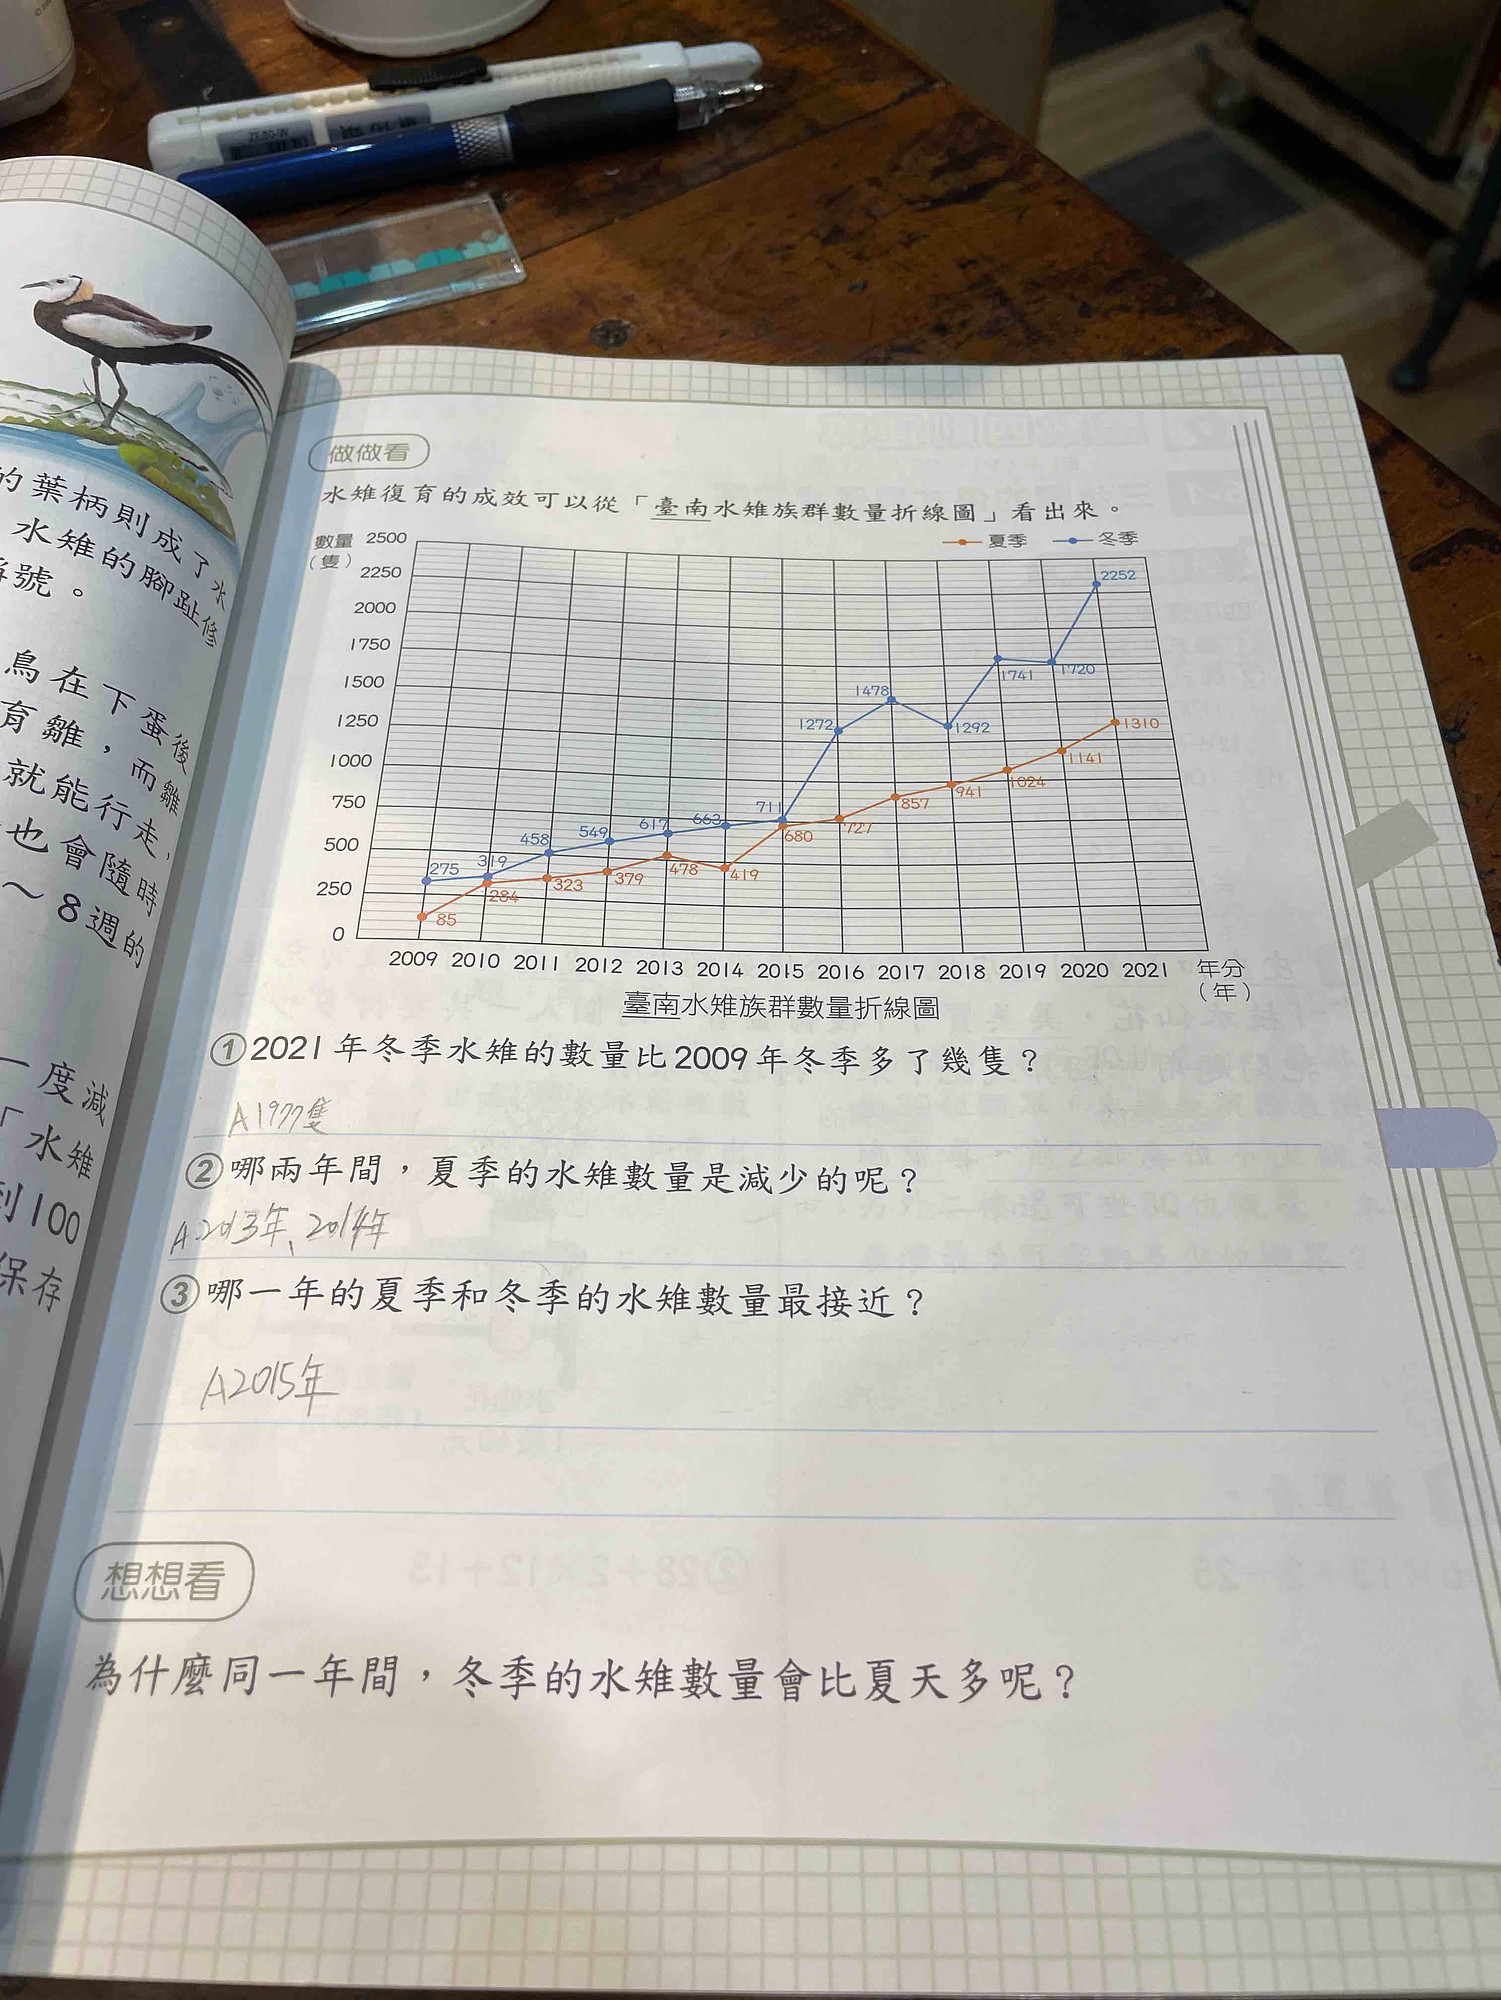 ZE80-W
的葉柄則成了水
水雉的腳趾修
號。
鳥在下蛋後
育雛，而雛
就能行走，
也會隨時
～8週的
一度減
「水雉
到100
保存
做做看
水雉復育的成效可以從「臺南水雉族群數量折線圖」看出來。
數量
（隻）
夏季 冬季
2500
2250
2000
1750
1500
1250
1000
750
500
250
0
275 319 458 549 617 663 711 1272 1478 1292 1741 1720 2252
85 284 323 379 478 419 680 727 857 941 1024 1141 1310
2009 2010 2011 2012 2013 2014 2015 2016 2017 2018 2019 2020 2021 年分
（年）
臺南水雉族群數量折線圖
①2021年冬季水雉的數量比2009年冬季多了幾隻？
A1977隻
②哪兩年間，夏季的水雉數量是減少的呢？
A.2013年、2014年
③哪一年的夏季和冬季的水雉數量最接近？
A2015年
想想看
為什麼同一年間，冬季的水雉數量會比夏天多呢？